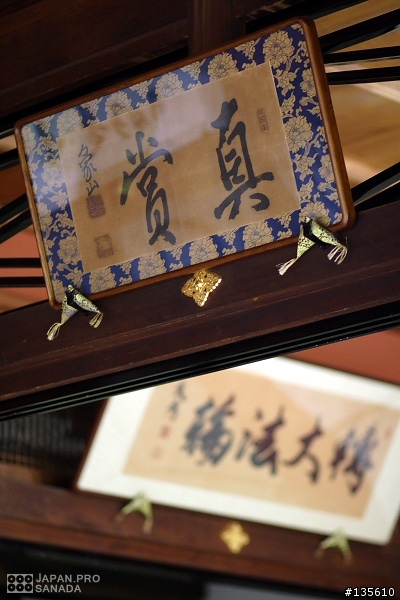 真賞
象山
轉大法輪
JAPAN.PRO
SANADA
#135610